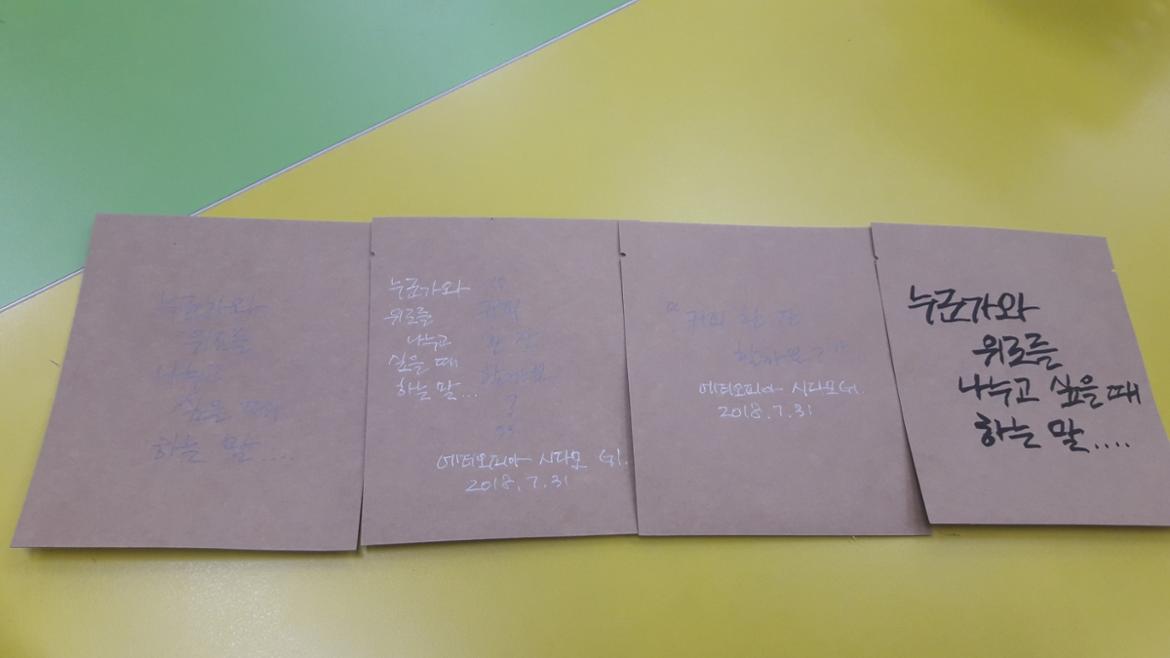 누군가와
위로를
나누고
싶을 때
하는 말....
누군가와
위로를
나누고
싶을 때
하는 말...
"
커피
한 잔
할까요
?
"
에티오피아 시다모 G1.
2018.7.31
"커피 한 잔
할까요?"
에티오피아 시다모G1.
2018.7.31
누군가와
위로를
나누고 싶을 때
하는 말....